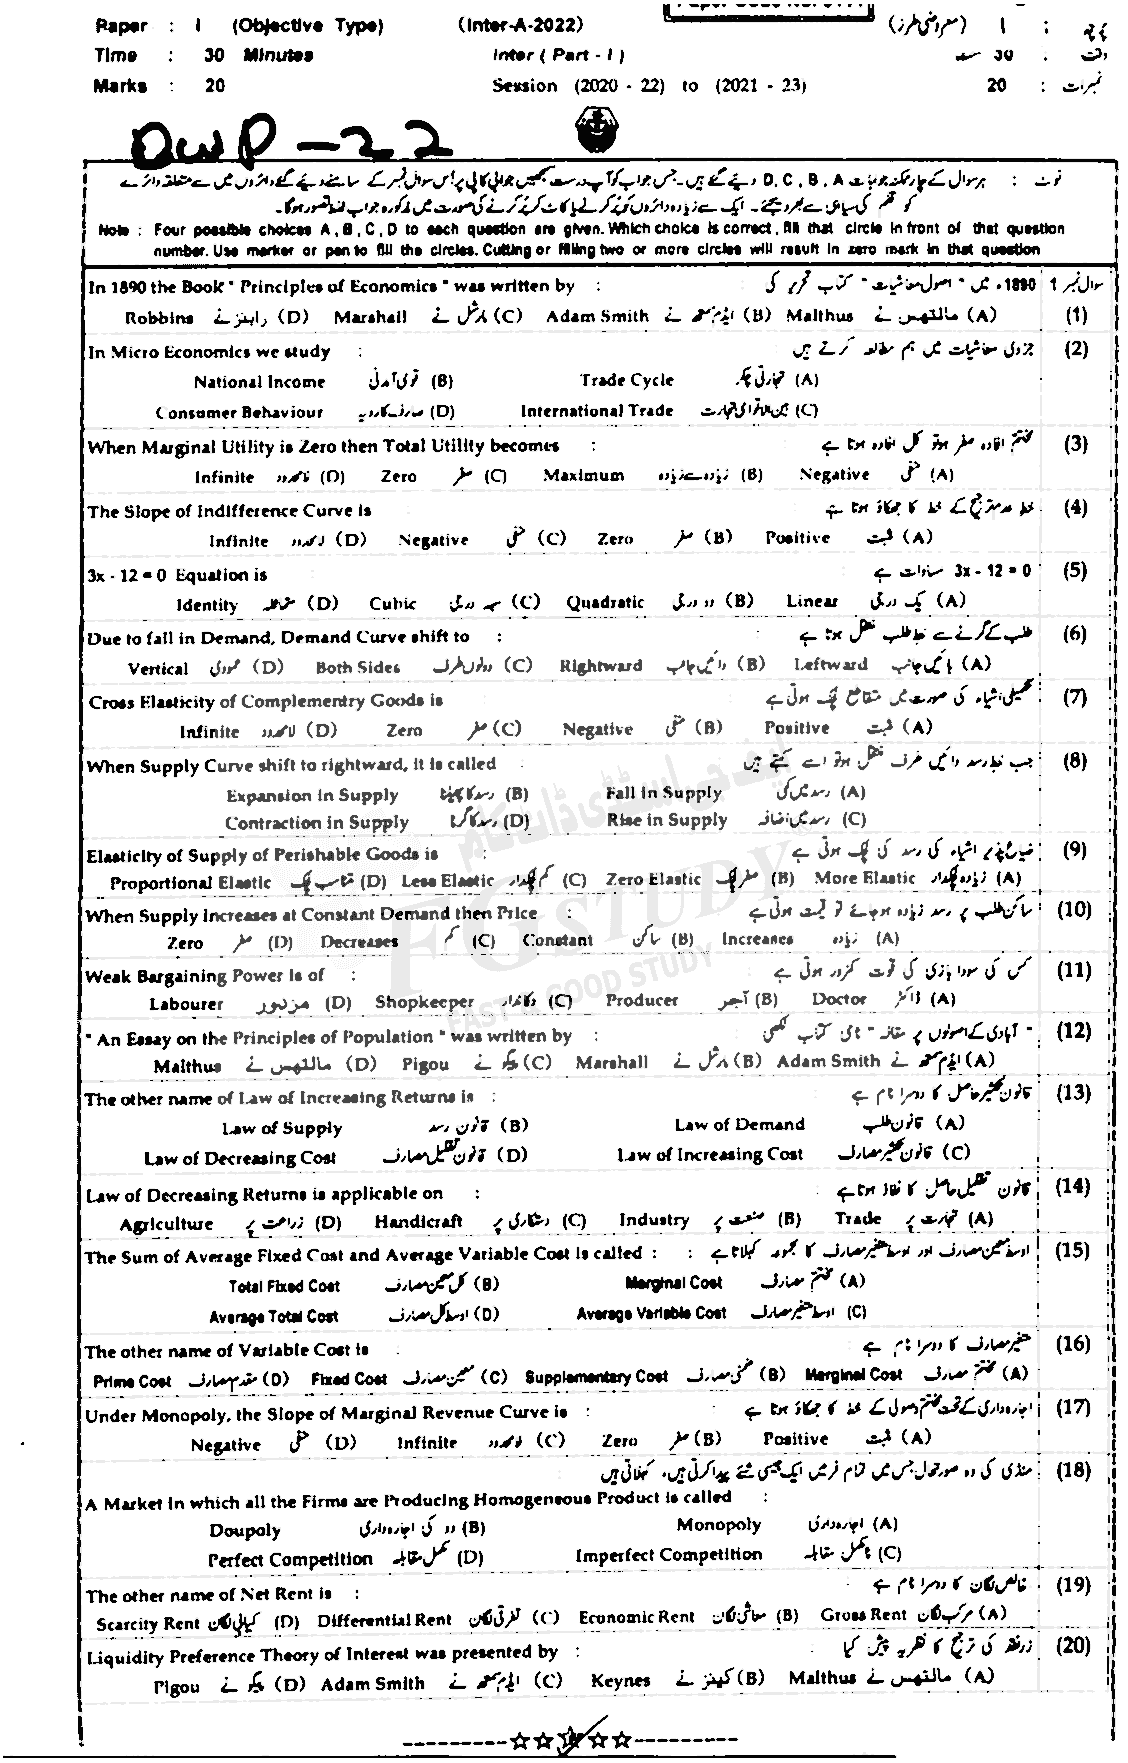 Paper : I (Objective Type) (Inter-A-2022) پرچہ : I (معروضی طرز)
Time : 30 Minutes Inter (Part - I) وقت : 30 منٹ
Marks : 20 Session (2020 - 22) to (2021 - 23) نمبرات : 20
DWP-22
نوٹ : ہر سوال کے چار ممکنہ جوابات D, C, B, A دیئے گئے ہیں۔ جس جواب کو آپ درست سمجھیں جوابی کاپی پر اُس سوال نمبر کے سامنے دیئے گئے دائروں میں سے متعلقہ دائرے
کو قلم کی سیاہی سے بھر دیجئے۔ ایک سے زیادہ دائروں کو پُر کرنے یا کاٹ کر پُر کرنے کی صورت میں مذکورہ جواب غلط تصور ہوگا۔
Note : Four possible choices A, B, C, D to each question are given. Which choice is correct, fill that circle in front of that question
number. Use marker or pen to fill the circles. Cutting or filling two or more circles will result in zero mark in that question
سوال نمبر 1
In 1890 the Book " Principles of Economics " was written by : 1890ء میں " اصول معاشیات " کتاب تحریر کی
(1) (A) مالتھس نے Malthus (B) ایڈم سمتھ نے Adam Smith (C) مارشل نے Marshall (D) رابنز نے Robbins
(2) In Micro Economics we study : جزوی معاشیات میں ہم مطالعہ کرتے ہیں
(A) تجارتی چکر Trade Cycle (B) قومی آمدنی National Income
(C) بین الاقوامی تجارت International Trade (D) صارف کا رویہ Consumer Behaviour
(3) When Marginal Utility is Zero then Total Utility becomes : مختتم افادہ صفر ہو تو کل افادہ ہوتا ہے
(A) منفی Negative (B) زیادہ سے زیادہ Maximum (C) صفر Zero (D) لامحدود Infinite
(4) The Slope of Indifference Curve is خط عدم ترجیح کے خط کا جھکاؤ ہوتا ہے
(A) مثبت Positive (B) صفر Zero (C) منفی Negative (D) لامحدود Infinite
(5) 3x - 12 = 0 Equation is 3x - 12 = 0 مساوات ہے
(A) یک درجی Linear (B) دو درجی Quadratic (C) سہ درجی Cubic (D) متماثلہ Identity
(6) Due to fall in Demand, Demand Curve shift to : طلب کے گرنے سے خط طلب منتقل ہوتا ہے
(A) بائیں جانب Leftward (B) دائیں جانب Rightward (C) دونوں طرف Both Sides (D) عمودی Vertical
(7) Cross Elasticity of Complementry Goods is تکمیلی اشیاء کی صورت میں متقاطع لچک ہوتی ہے
(A) مثبت Positive (B) منفی Negative (C) صفر Zero (D) لامحدود Infinite
(8) When Supply Curve shift to rightward, it is called جب خط رسد دائیں طرف منتقل ہو تو اسے کہتے ہیں
(A) رسد میں کمی Fall in Supply (B) رسد کا پھیلنا Expansion in Supply
(C) رسد میں اضافہ Rise in Supply (D) رسد کا سکڑنا Contraction in Supply
(9) Elasticity of Supply of Perishable Goods is : ضیاع پذیر اشیاء کی رسد کی لچک ہوتی ہے
(A) زیادہ لچکدار More Elastic (B) صفر لچک Zero Elastic (C) کم لچکدار Less Elastic (D) متناسب لچک Proportional Elastic
(10) When Supply Increases at Constant Demand then Price : ساکن طلب پر رسد زیادہ ہو جائے تو قیمت ہوتی ہے
(A) زیادہ Increases (B) ساکن Constant (C) کم Decreases (D) صفر Zero
(11) Weak Bargaining Power is of : کس کی سودا بازی کی قوت کمزور ہوتی ہے
(A) ڈاکٹر Doctor (B) آجر Producer (C) دکاندار Shopkeeper (D) مزدور Labourer
(12) " An Essay on the Principles of Population " was written by : " آبادی کے اصولوں پر مقالہ " نامی کتاب لکھی
(A) ایڈم سمتھ نے Adam Smith (B) مارشل نے Marshall (C) پیگو نے Pigou (D) مالتھس نے Malthus
(13) The other name of Law of Increasing Returns is : قانون تکثیر حاصل کا دوسرا نام ہے
(A) قانون طلب Law of Demand (B) قانون رسد Law of Supply
(C) قانون تکثیر مصارف Law of Increasing Cost (D) قانون تقلیل مصارف Law of Decreasing Cost
(14) Law of Decreasing Returns is applicable on : قانون تقلیل حاصل کا نفاذ ہوتا ہے
(A) تجارت پر Trade (B) صنعت پر Industry (C) دستکاری پر Handicraft (D) زراعت پر Agriculture
(15) The Sum of Average Fixed Cost and Average Variable Cost is called : : اوسط معین مصارف اور اوسط متغیر مصارف کا مجموعہ کہلاتا ہے
(A) مختتم مصارف Marginal Cost (B) کل معین مصارف Total Fixed Cost
(C) اوسط متغیر مصارف Average Variable Cost (D) اوسط کل مصارف Average Total Cost
(16) The other name of Variable Cost is : متغیر مصارف کا دوسرا نام ہے
(A) مختتم مصارف Marginal Cost (B) ضمنی مصارف Supplementary Cost (C) معین مصارف Fixed Cost (D) مقدم مصارف Prime Cost
(17) Under Monopoly, the Slope of Marginal Revenue Curve is : اجارہ داری کے تحت مختتم وصولی کے خط کا جھکاؤ ہوتا ہے
(A) مثبت Positive (B) صفر Zero (C) لامحدود Infinite (D) منفی Negative
(18) منڈی کی وہ صورتحال جس میں تمام فرمیں ایک جیسی شے پیدا کرتی ہیں، کہلاتی ہیں
A Market in which all the Firms are Producing Homogeneous Product is called :
(A) اجارہ داری Monopoly (B) دو کی اجارہ داری Doupoly
(C) نامکمل مقابلہ Imperfect Competition (D) مکمل مقابلہ Perfect Competition
(19) The other name of Net Rent is : خالص لگان کا دوسرا نام ہے
(A) مرکب لگان Gross Rent (B) معاشی لگان Economic Rent (C) تفرقی لگان Differential Rent (D) کمیابی لگان Scarcity Rent
(20) Liquidity Preference Theory of Interest was presented by : زرنقد کی ترجیح کا نظریہ پیش کیا
(A) مالتھس نے Malthus (B) کینز نے Keynes (C) ایڈم سمتھ نے Adam Smith (D) پیگو نے Pigou
FG STUDY
EAST & GOOD STUDY